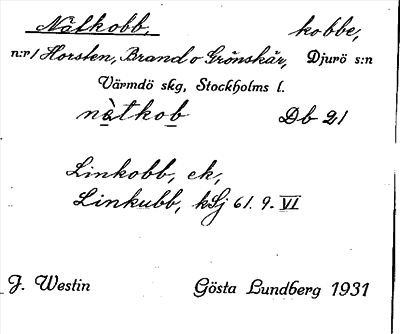 Nätkobb, kobbe,
n:r 1 Horsten, Brand o Grönskär, Djurö s:n
Värmdö skg, Stockholms l.
nàtkob Db 21
Linkobb, ek,
Linkubb, kSj 61. 9. VI
J. Westin Gösta Lundberg 1931